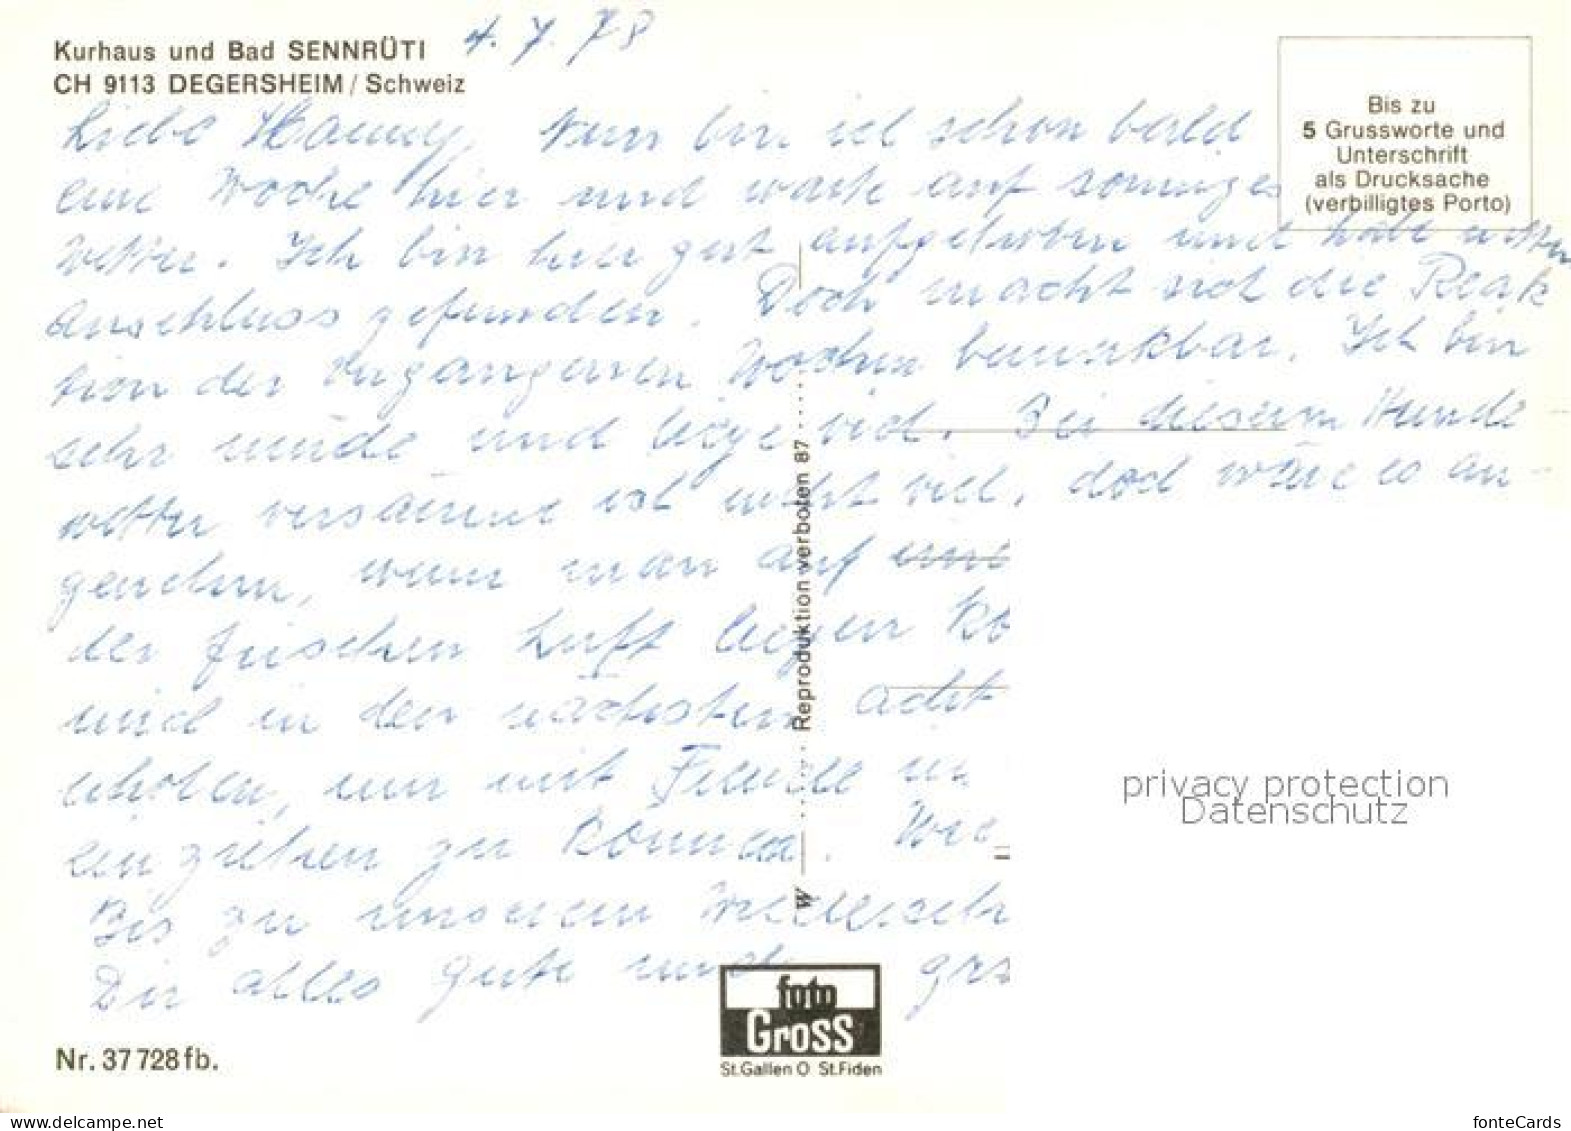 Kurhaus und Bad SENNRÜTI
CH 9113 DEGERSHEIM / Schweiz
4. 7. 78
Bis zu
5 Grussworte und
Unterschrift
als Drucksache
(verbilligtes Porto)
Liebe Hanny, Nun bin ich schon bald
eine Woche hier und warte auf sonniges
Wetter. Ich bin hier gut aufgehoben und habe netten
Anschluss gefunden. Doch macht sich die Reak
tion der vergangenen Wochen bemerkbar. Ich bin
sehr müde und liege viel. Bei diesem Hunde
wetter versäume ich nicht viel, doch wäre es an-
genehm, wenn man auf
der frischen Luft liegen kö
und in den nächsten acht
erholen, um mit Freude in
einziehen zu können. Wie
Bis zu unserem Wiederseh
Dir alles gute und grü
Reproduktion verboten 87
W
foto
Gross
St.Gallen O St.Fiden
Nr. 37 728 fb.
privacy protection
Datenschutz
www.delcampe.net
fonteCards